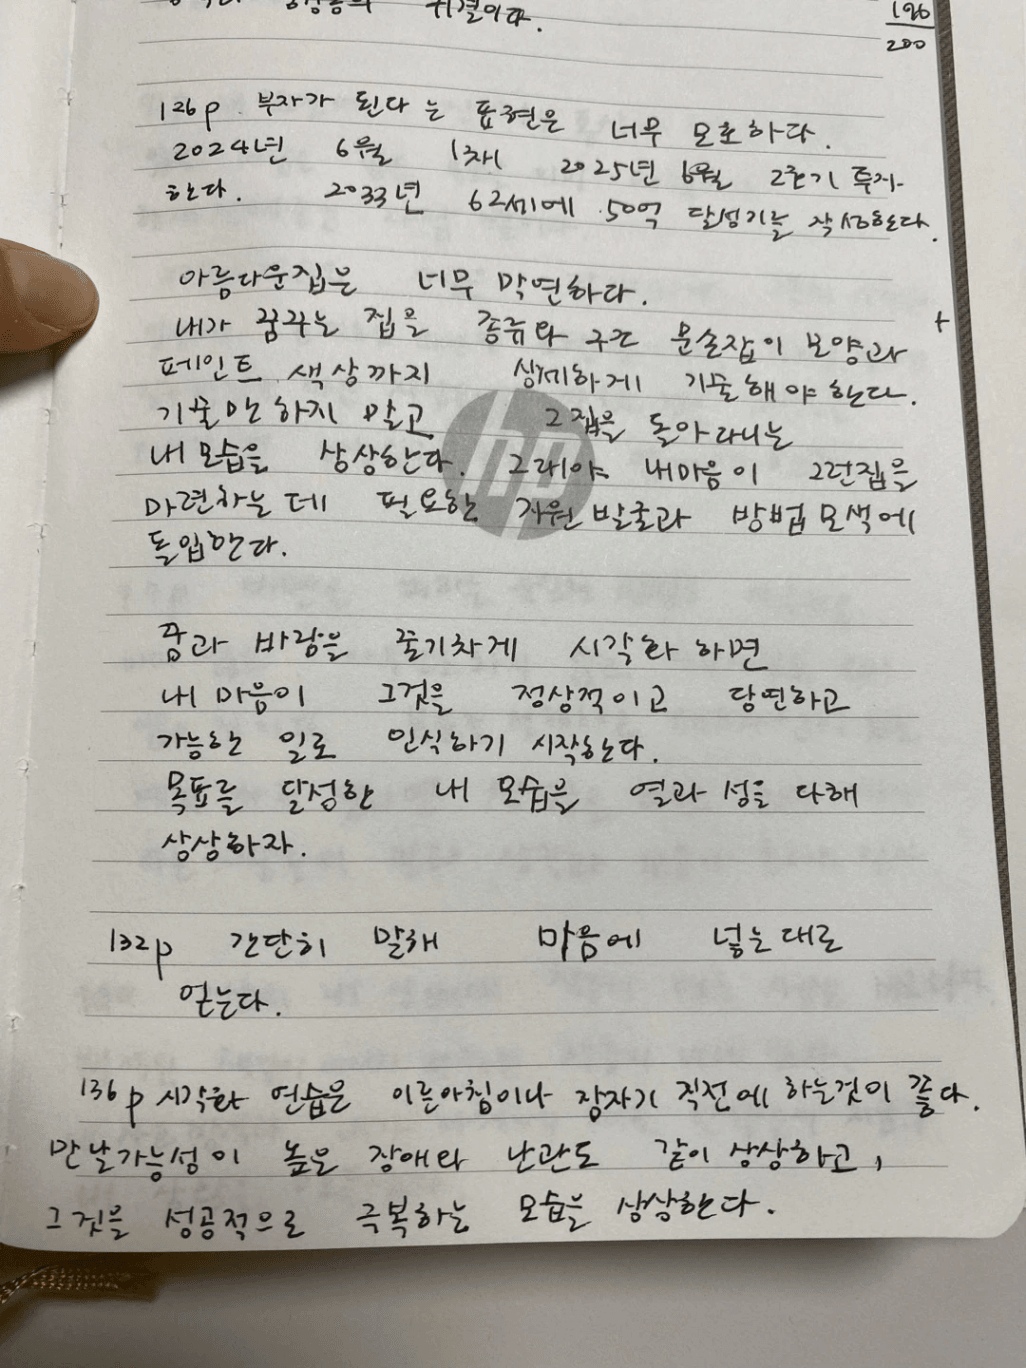 귀결이다.
196
200
126p. 부자가 된다는 표현은 너무 모호하다.
2024년 6월 1차 2025년 6월 2분기 투자
한다. 2033년 62세에 50억 달성기를 작성한다.
아름다운집은 너무 막연하다.
내가 꿈꾸는 집을 종류와 구조 문손잡이 모양과
페인트 색상까지 상세하게 기술해야 한다.
기술만 하지 말고 그집을 돌아다니는
내 모습을 상상한다. 그래야 내마음이 그런집을
마련하는 데 필요한 자원 발굴과 방법 모색에
돌입한다.
hp
꿈과 바람을 줄기차게 시각화 하면
내 마음이 그것을 정상적이고 당연하고
가능한 일로 인식하기 시작한다.
목표를 달성한 내 모습을 열과 성을 다해
상상하자.
132p 간단히 말해 마음에 넣는대로
얻는다.
136p 시각화 연습은 이른아침이나 잠자기 직전에 하는것이 좋다.
만날가능성이 높은 장애와 난관도 같이 상상하고,
그것을 성공적으로 극복하는 모습을 상상한다.